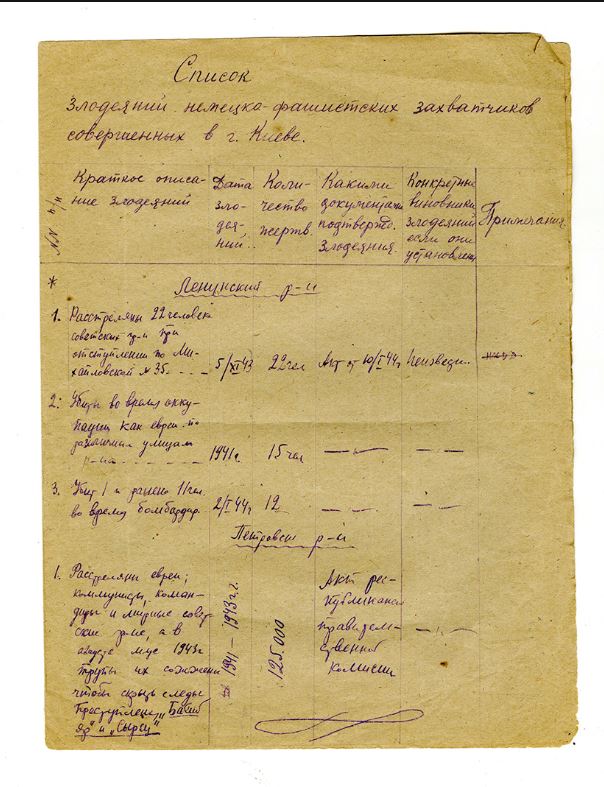 1
Список
злодеяний немецко-фашистских захватчиков
совершенных в г. Киеве.
NN п/п
Краткое описа-
ние злодеяний
Дата
зло-
дея-
ний
Коли-
чество
жертв
Какими
документами
подтвержд.
злодеяния
Конкретные
виновники
злодеяний
если они
установлены
Примечания
* Ленинский р-н
1. Расстреляны 22 человек
советских гр-н при
отступлении по Ми-
хайловской № 35
5/XI 43
22 чел
Акт от 10/I 44г
Неизвестн.
2. Убиты во время окку-
пации как евреи по
различным улицам
р-на
1941г
15 чел
— " —
— " —
3. Убит 1 и ранено 11 чел.
во время бомбардир.
2/I 44г
12
— " —
— " —
Петровск р-н
1. Расстреляны евреи,
коммунисты, коман-
диры и мирные совет
ские гр-не, а в
августе м-це 1943г
трупы их сожжены
чтобы скрыть следы
преступлен. "Бабий
Яр" и "Сырец"
1941 – 1943 г.г.
125.000
Акт рес-
публиканской
правительст-
ственной
комиссии
— " —